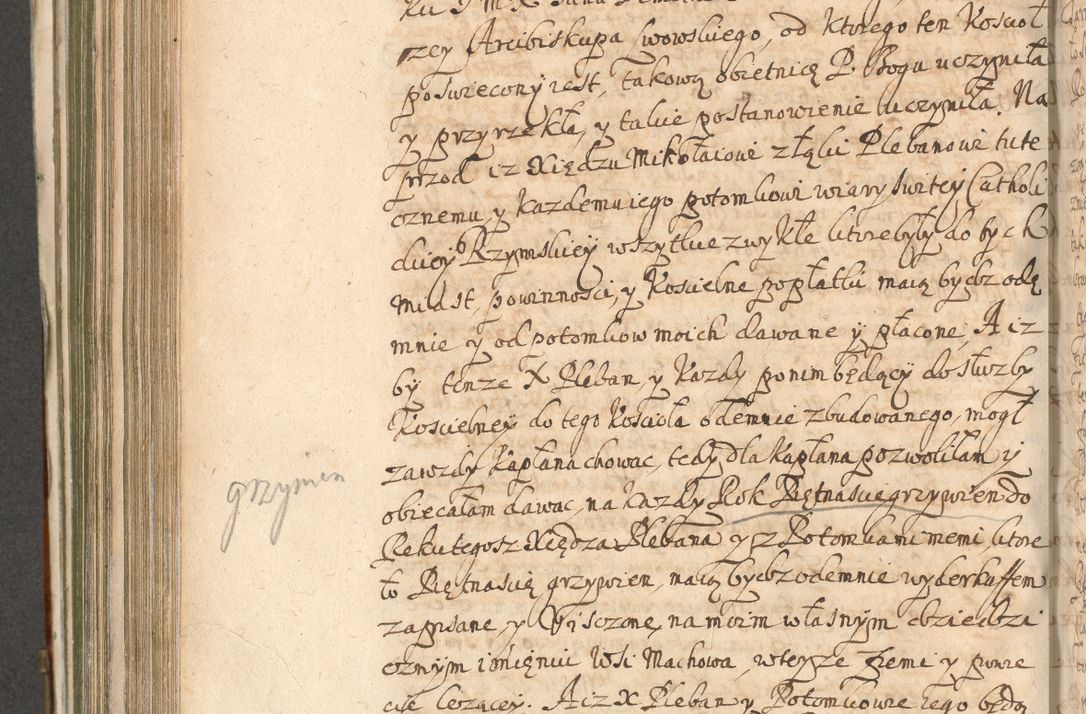 rzey Arcibiskupa Lwowskiego, od ktorego ten Koscioł
poswiecony iest, takową obietnicę P. Bogu uczyniła
y przyrzekła, y takie postanowienie uczyniła. Na
przod iz Xiędzu Mikołaiowi złąki Plebanowi tute
cznemu, y kazdemu iego potomkowi wiary switey Catholi
ckiey Rzymskiey wszytkie zwykłe ktore były do tych
miast, powinnosci, y Koscielne popłatki maią bydz odę
mnie y od potomkow moich dawane y płacone, A iz
by tenze X Pleban, y Kozdy ponim będący do słuzby
Koscielney do tego Koscioła odemnie zbudowanego, mogł
zawzdy Kapłana chowac, tedy dla Kapłana pozwoliłam y
obiecałam dawac, na kazdy Rok Piętnascie grzywien do
Ręku tegosz Xiędza Plebana y z Potomkami memi, ktore
to Piętnascię grzywien, maią bydz odemnie wyderkaffem
zapisane, y Uisczone, na moim własnym dziedzi
cznym imieniu Wsi Machowa, wteyze ziemi y powie
cie lezącey. A iz X Pleban y Potomkowie iego będą
grzywien